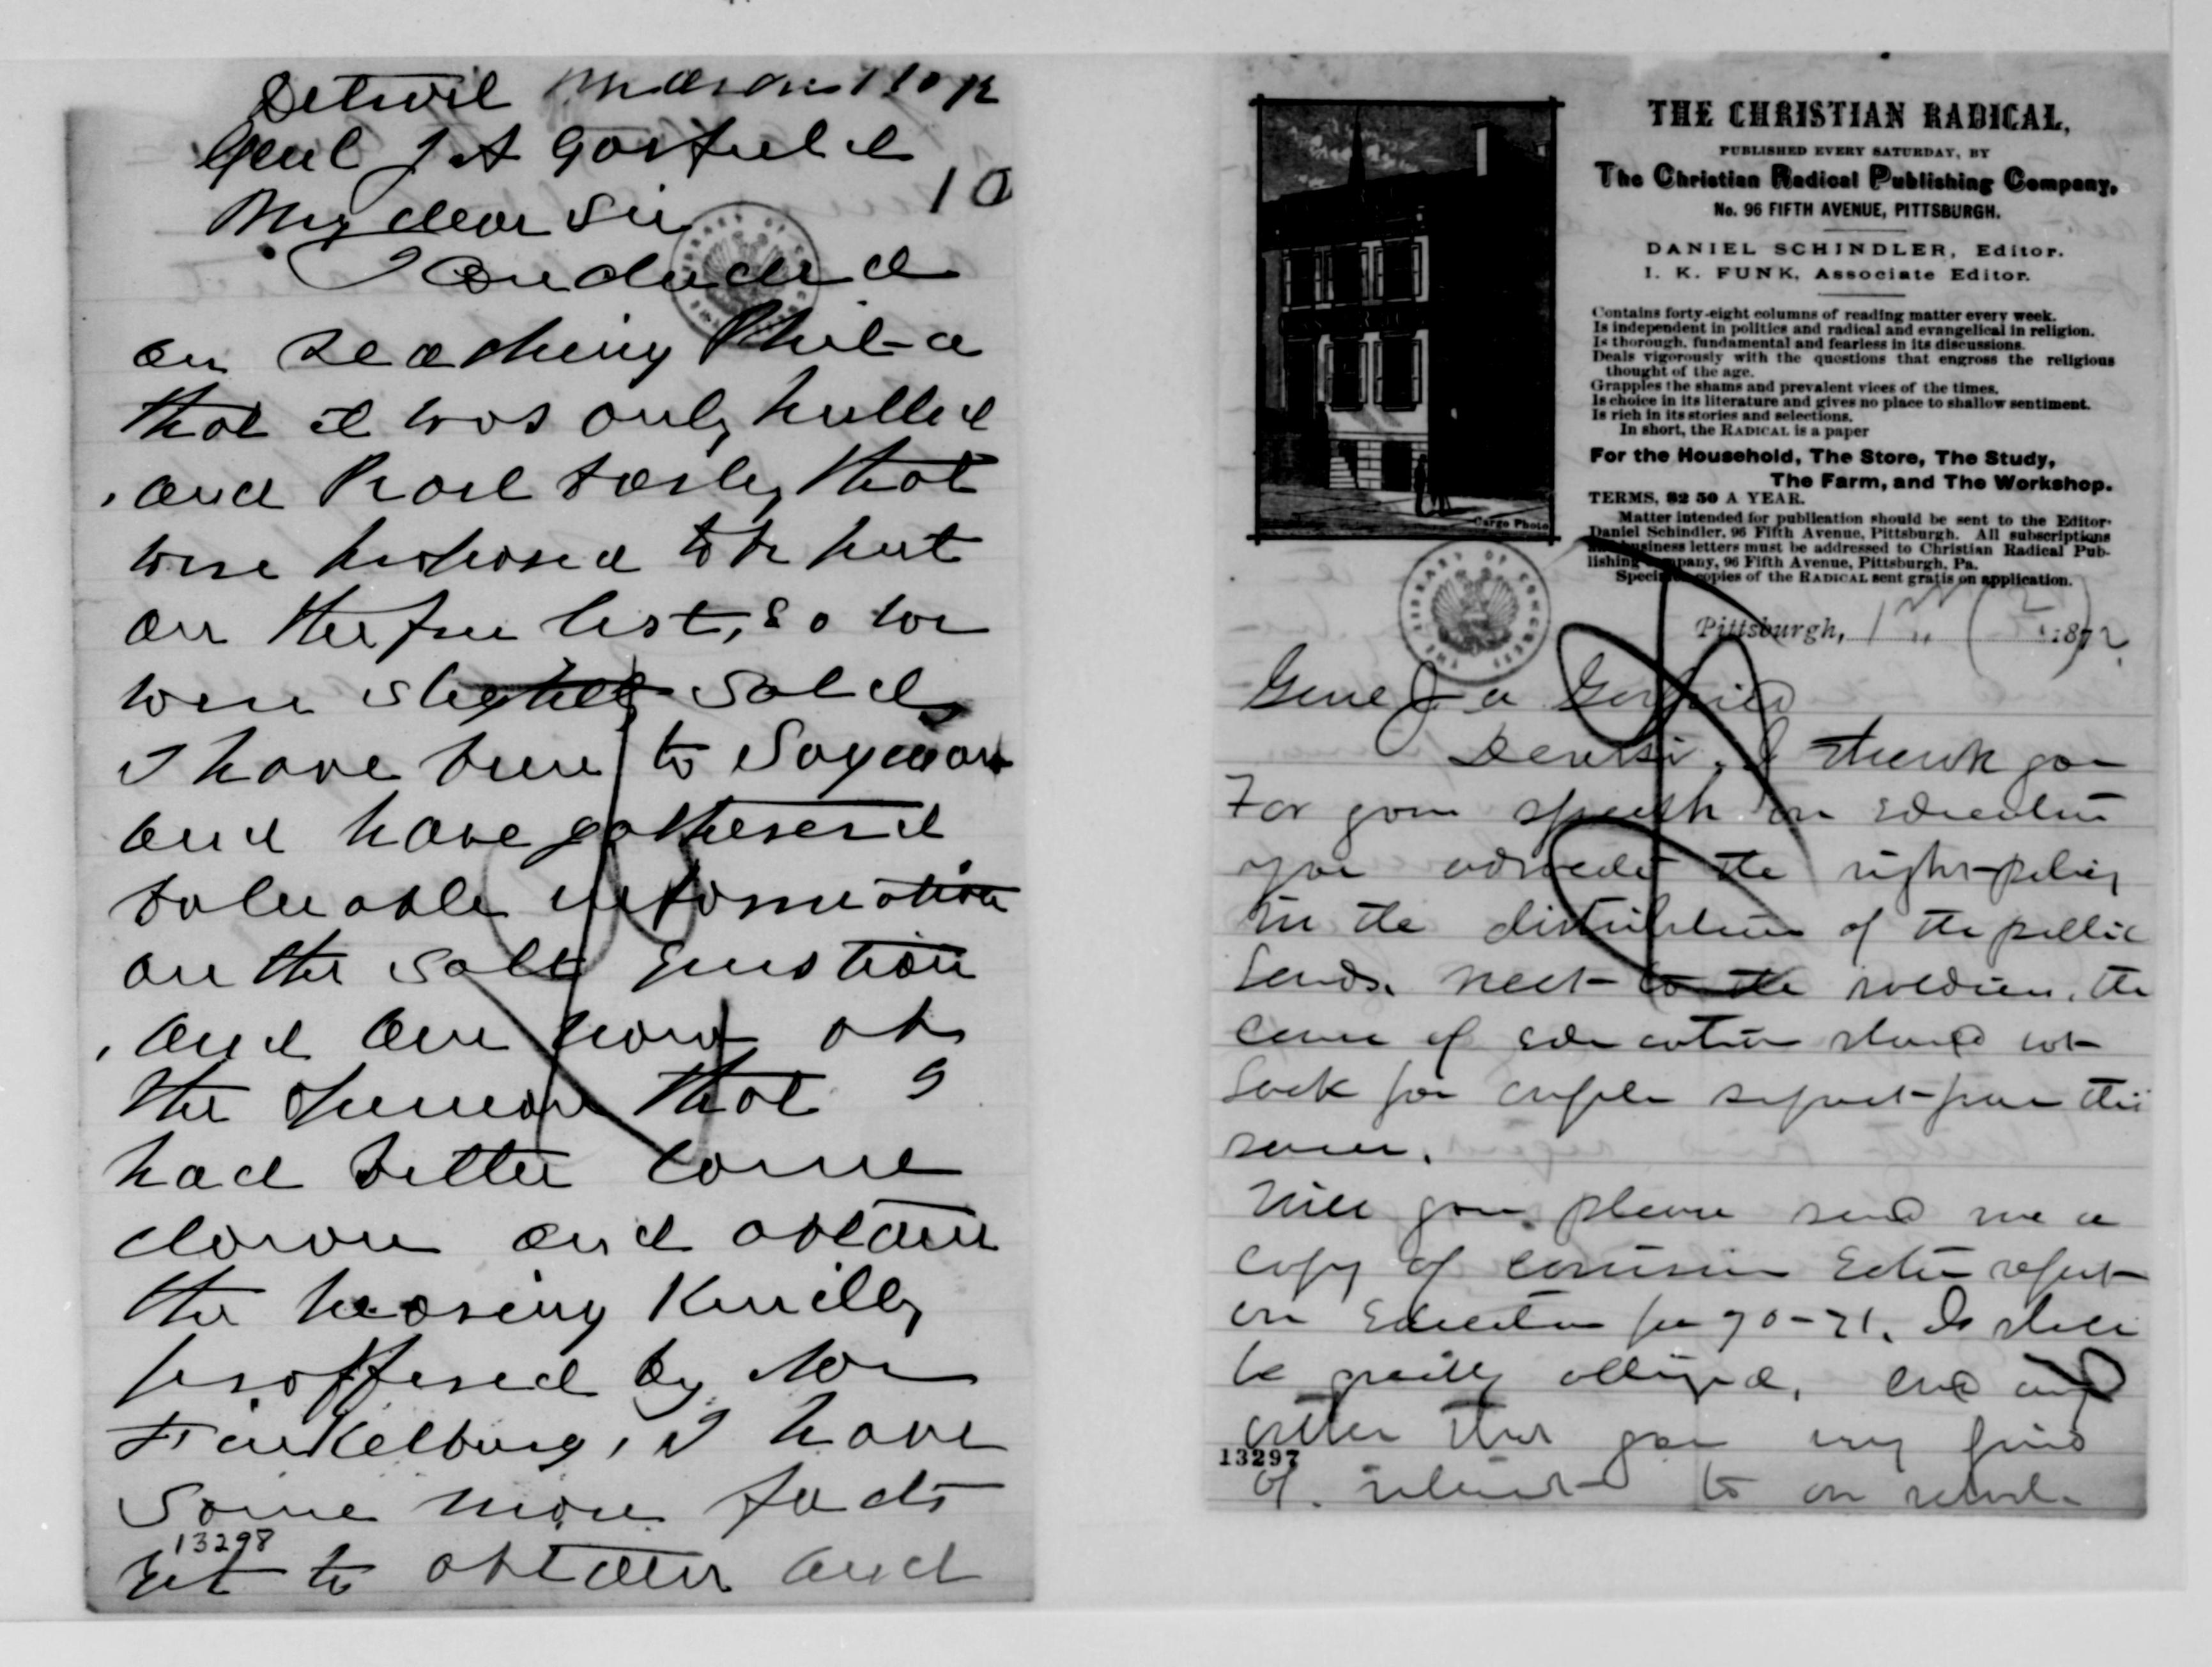 Detroit
Genl J A Garfield
10
My dear Sir
I Concluded
on reaching Phila
that it was only hulled
and Pearl barley that
were proposed to be put
on the free list, so we
were slightly sold
I have been to Saginaw
and have gathered
valuable information
on the salt question
and am now of
the opinion that I
had better come
down and obtain
the hearing Kindly
proffered by Mr
Finkelburg, I have
some more facts
13298
yet to obtain and
THE CHRISTIAN RADICAL,
PUBLISHED EVERY SATURDAY, BY
The Christian Radical Publishing Company,
No. 96 FIFTH AVENUE, PITTSBURGH.
DANIEL SCHINDLER, Editor.
I. K. FUNK, Associate Editor.
Contains forty-eight columns of reading matter every week.
Is independent in politics and radical and evangelical in religion.
Is thorough, fundamental and fearless in its discussions.
Deals vigorously with the questions that engross the religious
thought of the age.
Grapples the shams and prevalent vices of the times.
Is choice in its literature and gives no place to shallow sentiment.
Is rich in its stories and selections.
In short, the RADICAL is a paper
For the Household, The Store, The Study,
The Farm, and The Workshop.
TERMS, $2 50 A YEAR.
Matter intended for publication should be sent to the Editor-
Daniel Schindler, 96 Fifth Avenue, Pittsburgh. All subscriptions
business letters must be addressed to Christian Radical Pub-
lishing Company, 96 Fifth Avenue, Pittsburgh, Pa.
Specimen copies of the RADICAL sent gratis on application.
LIBRARY OF CONGRESS
Pittsburgh, 1872
Genl J A Garfield
Dear Sir, I thank you
For your speech on Education
you advocate the right policy
in the distribution of the public
lands. Next to the soldiers, the
cause of education should not
lack for ample support from this
source.
Will you please send me a
copy of Commissioner Eaton report
on Education for 70-71. I shall
be greatly obliged, and any
other that you may find
13297
of interest to an